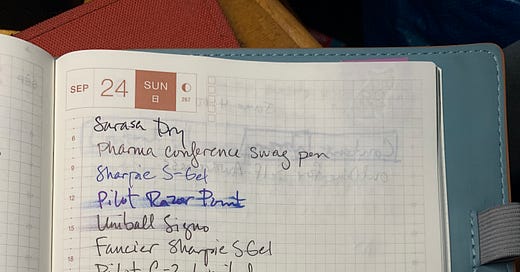 SEP 24 SUN
日 267
6
Sarasa Dry
Pharma conference swag pen
9
Sharpie S-Gel
12
Pilot Razor Point
15
Uniball Signo
18
Fancier Sharpie S Gel
Pilot G-2